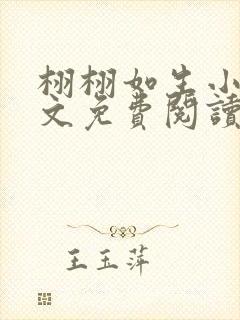 栩栩如生小
文免費閱讀
王玉萍